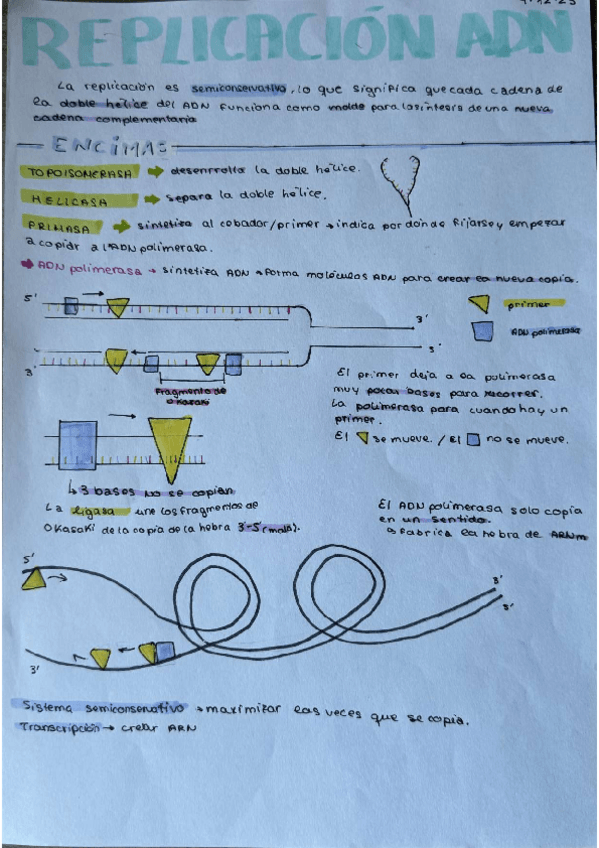 REPLICACIÓN ADN
La replicación es semiconservativo, lo que significa que cada cadena de
la doble hélice del ADN funciona como molde para la síntesis de una nueva
cadena complementaria
ENCIMAS
TOPOISOMERASA → desenrrolla la doble hélice.
HELICASA → separa la doble hélice.
PRIMASA → sintetiza al cebador/primer → indica por donde fijarse y empezar
a copiar a l'ADN polimerasa.
→ ADN polimerasa → sintetiza ADN → forma moléculas ADN para crear la nueva copia.
5'
3'
3'
5'
primer
ADN polimerasa
Fragmento de
Okazaki
El primer deja a la polimerasa
muy pocas bases para recorrer.
La polimerasa para cuando hay un
primer.
El se mueve. / El no se mueve.
↳ 3 bases no se copian
La ligasa une los fragmentos de
Okasaki de la copia de la hebra 3'-5' (mala).
El ADN polimerasa solo copia
en un sentido.
Fabrica la hebra de ARNm
5'
3'
3'
3'
Sistema semiconservativo → maximizar las veces que se copia.
Transcripción → crear ARN